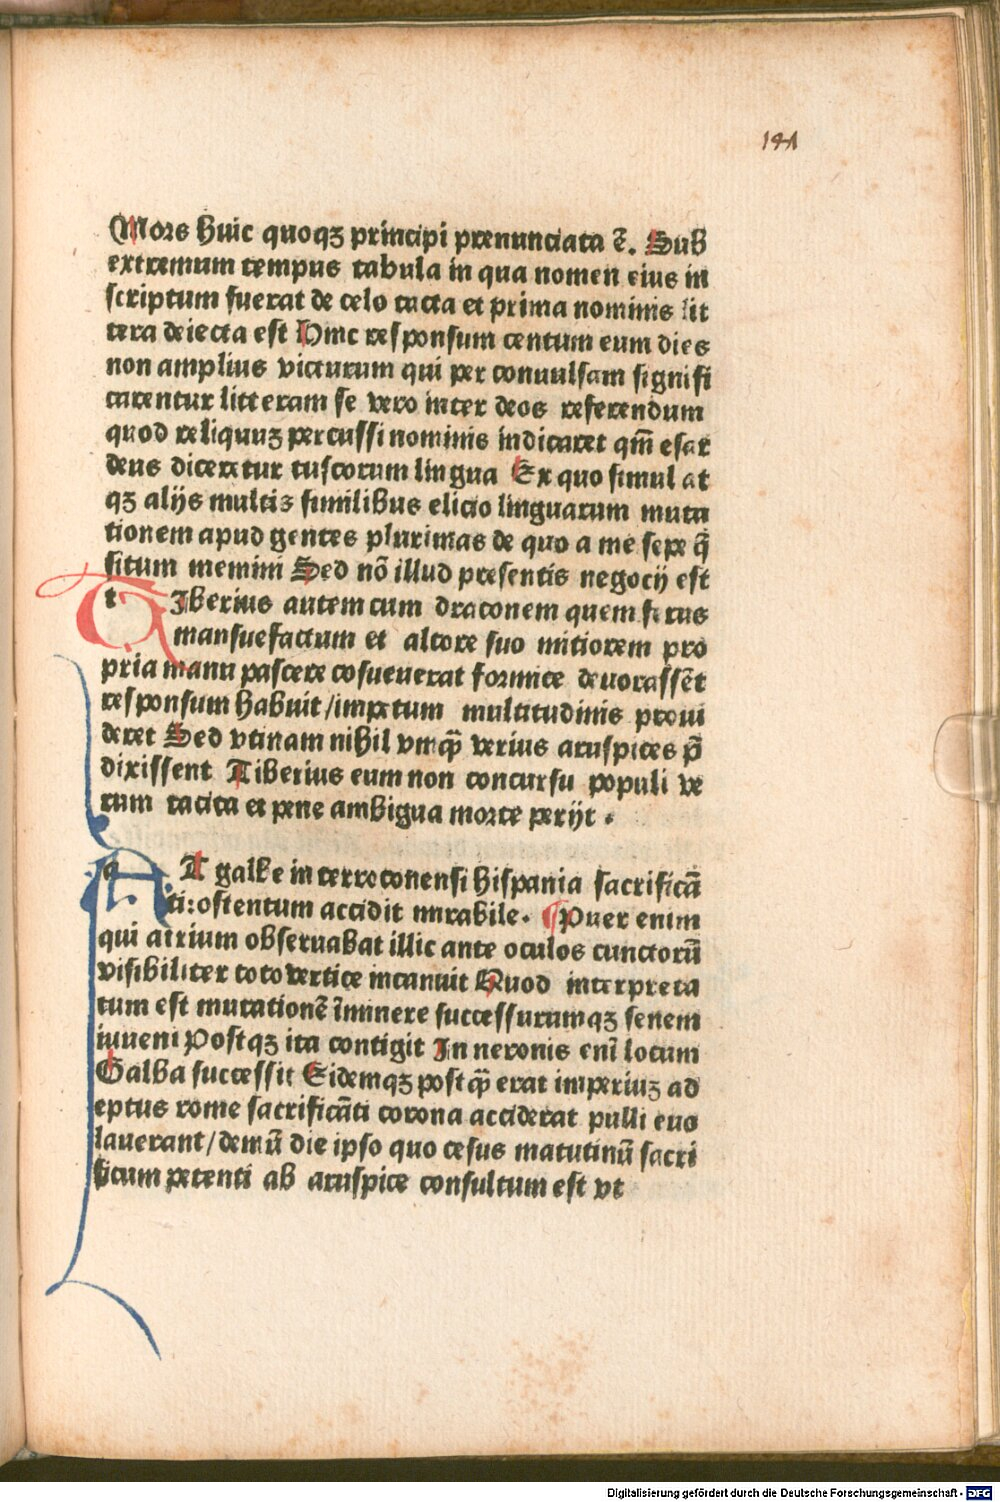 141
Mors huic quoqꝫ principi prenunciata ē. Sub
extremum tempus tabula in qua nomen eius in
scriptum fuerat de celo tacta et prima nominis lit
tera deiecta est Hinc responsum centum eum dies
non amplius victurum qui per conuulsam signifi
carentur litteram se vero inter deos referendum
quod reliquuꝫ percussi nominis indicaret qm̄ esar
deus diceretur tuscorum lingua Ex quo simul at
qꝫ alijs multis similibus elicio linguarum muta
tionem apud gentes plurimas de quo a me sepe q̄
situm memini Sed nō illud presentis negocij est
tIberius autem cum draconem quem ferus
mansuefactum et altore suo mitiorem pro
pria manu pascere cōsueuerat formice deuorassēt
responsum habuit/impetum multitudinis proui
deret Sed vtinam nihil vmq̄ verius aruspices p̄
dixissent Tiberius eum non concursu populi ve
rum tacita et pene ambigua morte perijt .
aT galbe in terroconensi hispania sacrificā
ti:ostentum accidit mirabile. ¶Puer enim
qui atrium obseruabat illic ante oculos cunctorū
visibiliter toto vertice incanuit Quod interpreta
tum est mutationē īminere successurumqꝫ senem
iuueni Postqꝫ ita contigit In neronis enī locum
Galba successit Eidemqꝫ post q̄ erat imperiuꝫ ad
eptus rome sacrificāti corona acciderat pulli euo
lauerant/demū die ipso quo cesus matutinū sacri
ficum petenti ab aruspice consultum est vt
Digitalisierung gefördert durch die Deutsche Forschungsgemeinschaft - DFG